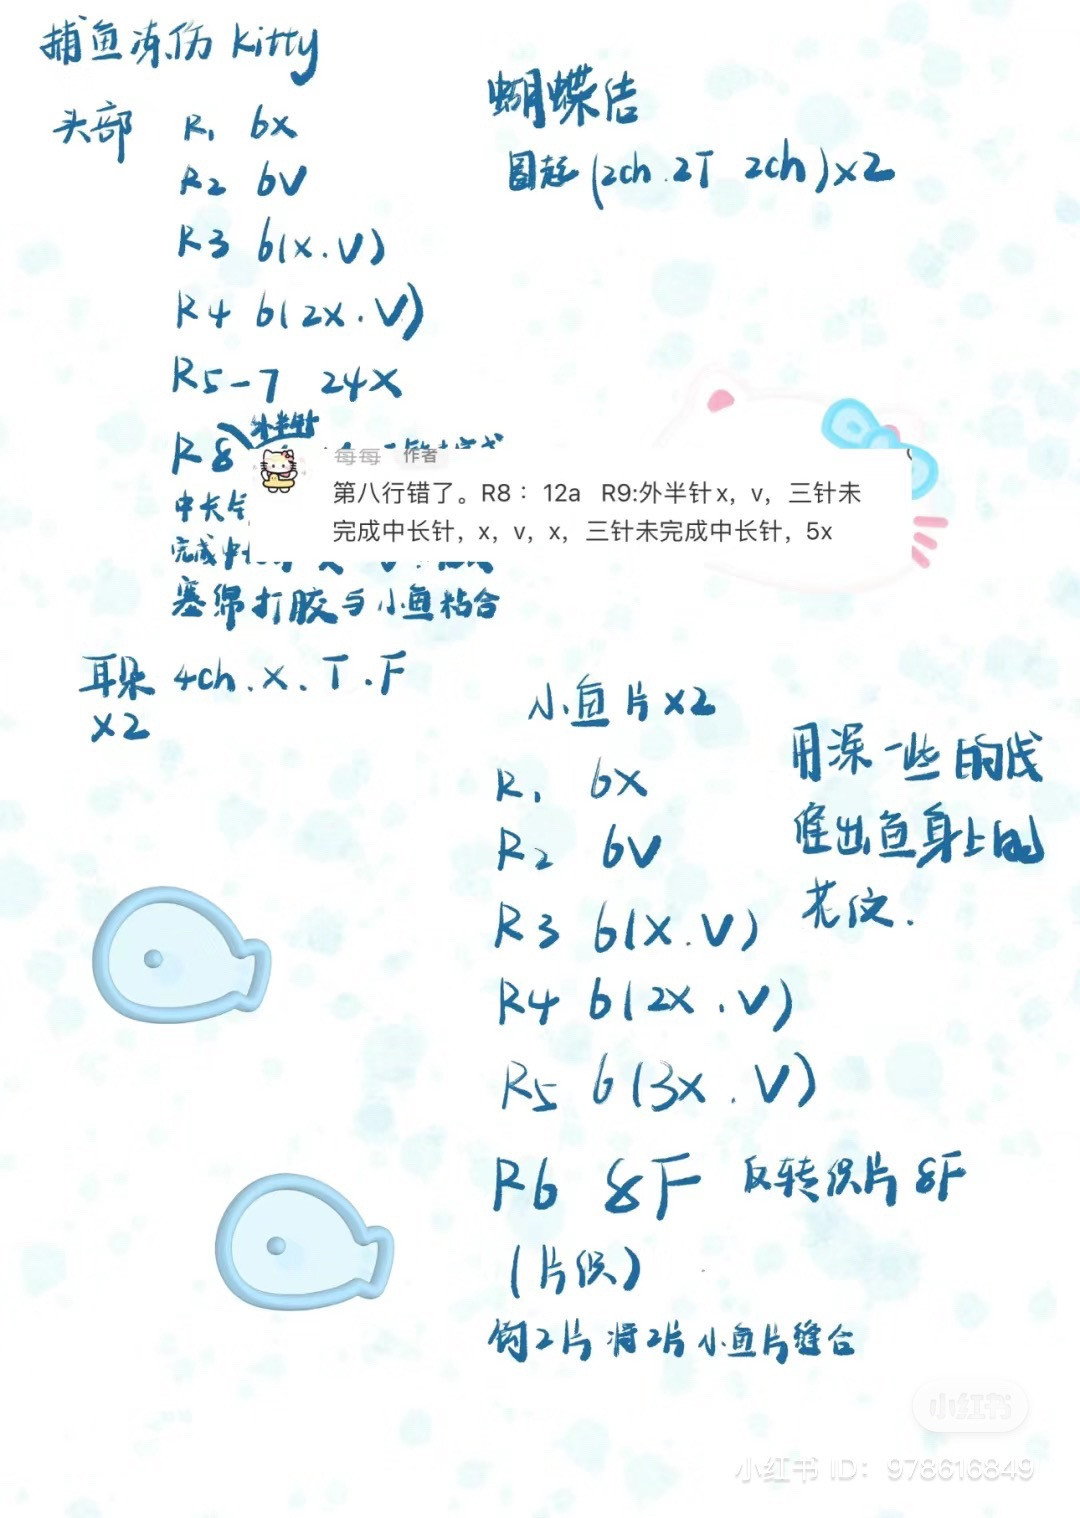 捕鱼冻伤 kitty
头部 R1 6X
R2 6V
R3 6(X.V)
R4 6(2X.V)
R5-7 24X
R8 外半针
中长
完成中
塞绵打胶与小鱼粘合
耳朵 4ch.X.T.F
X2
蝴蝶结
圆起(2ch.2T 2ch)X2
每每 作者
第八行错了。R8：12a R9:外半针x，v，三针未
完成中长针，x，v，x，三针未完成中长针，5x
小鱼片X2
R1 6X
R2 6V
R3 6(X.V)
R4 6(2X.V)
R5 6(3X.V)
R6 8F 反转织片 8F
(片织)
钩2片将2片小鱼片缝合
用深一些的线
在出鱼身上的
花纹.
小红书
小红书 ID：978616849